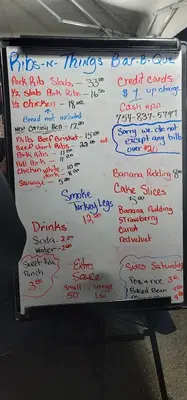 Ribs-N-Things Bar-B-Que
Pork Ribs Slabs - 33.00
1/2 slab Pork Ribs - 16.50
1/2 chicken - 18.00
Bread not included
1/2 lb Beef Brisket - 15.00
Beef Short Ribs - 22.00
Pork Ribs 11.00
Pull Pork
chicken white
Sausage - 5.00
Credit Cards
$1 up charge
Cash App
754-837-5797
Sorry we do not
except any bills
over $20
Smoke
Turkey Legs
12.00
Banana Pudding
Cake Slices
5.00
Banana Pudding
Strawberry
Carrot
Redvelvet
Drinks
Soda - 2.00
Water
Sweet Tea
Punch
3.00
Extra
Sauce
small Large
.50
Sides Saturday
Peas n rice
Baked Bean